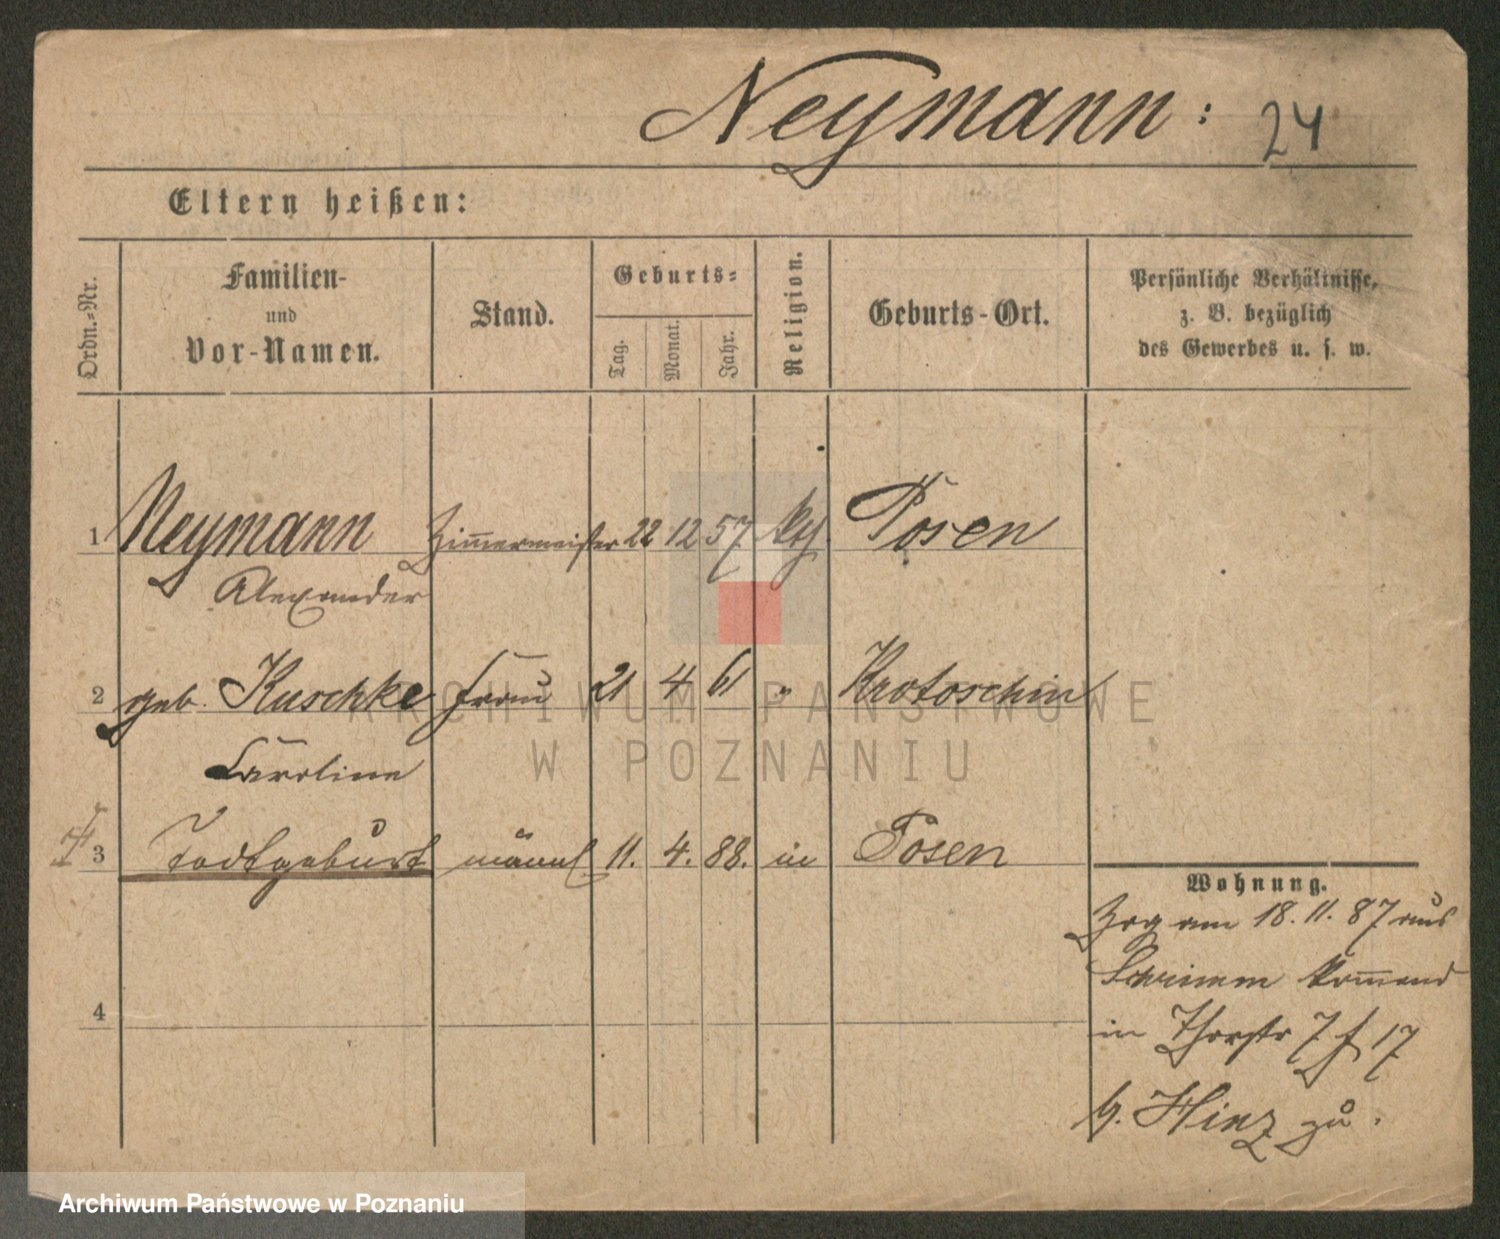 Neymann: 24
Eltern heißen:
Ordn.-Nr.
Familien-
und
Vor-Namen.
Stand.
Geburts=
Tag.
Monat.
Jahr.
Religion.
Geburts-Ort.
Persönliche Verhältnisse,
z. B. bezüglich
des Gewerbes u. s. w.
1 Neymann Zim̅ermeister 22 12 57 Posen
Alexander
2 geb. Kuschke Frau 21 4 61 " Krotoschin
Caroline
3 Todtgeburt männl. 11. 4. 88. in Posen
Wohnung.
Zog am 18. 11. 87 aus
Schrimm kom̅end
in Thorstr 7 f 17
b. Hinz zu.
4
ARCHIWUM PAŃSTWOWE
W POZNANIU
Archiwum Państwowe w Poznaniu